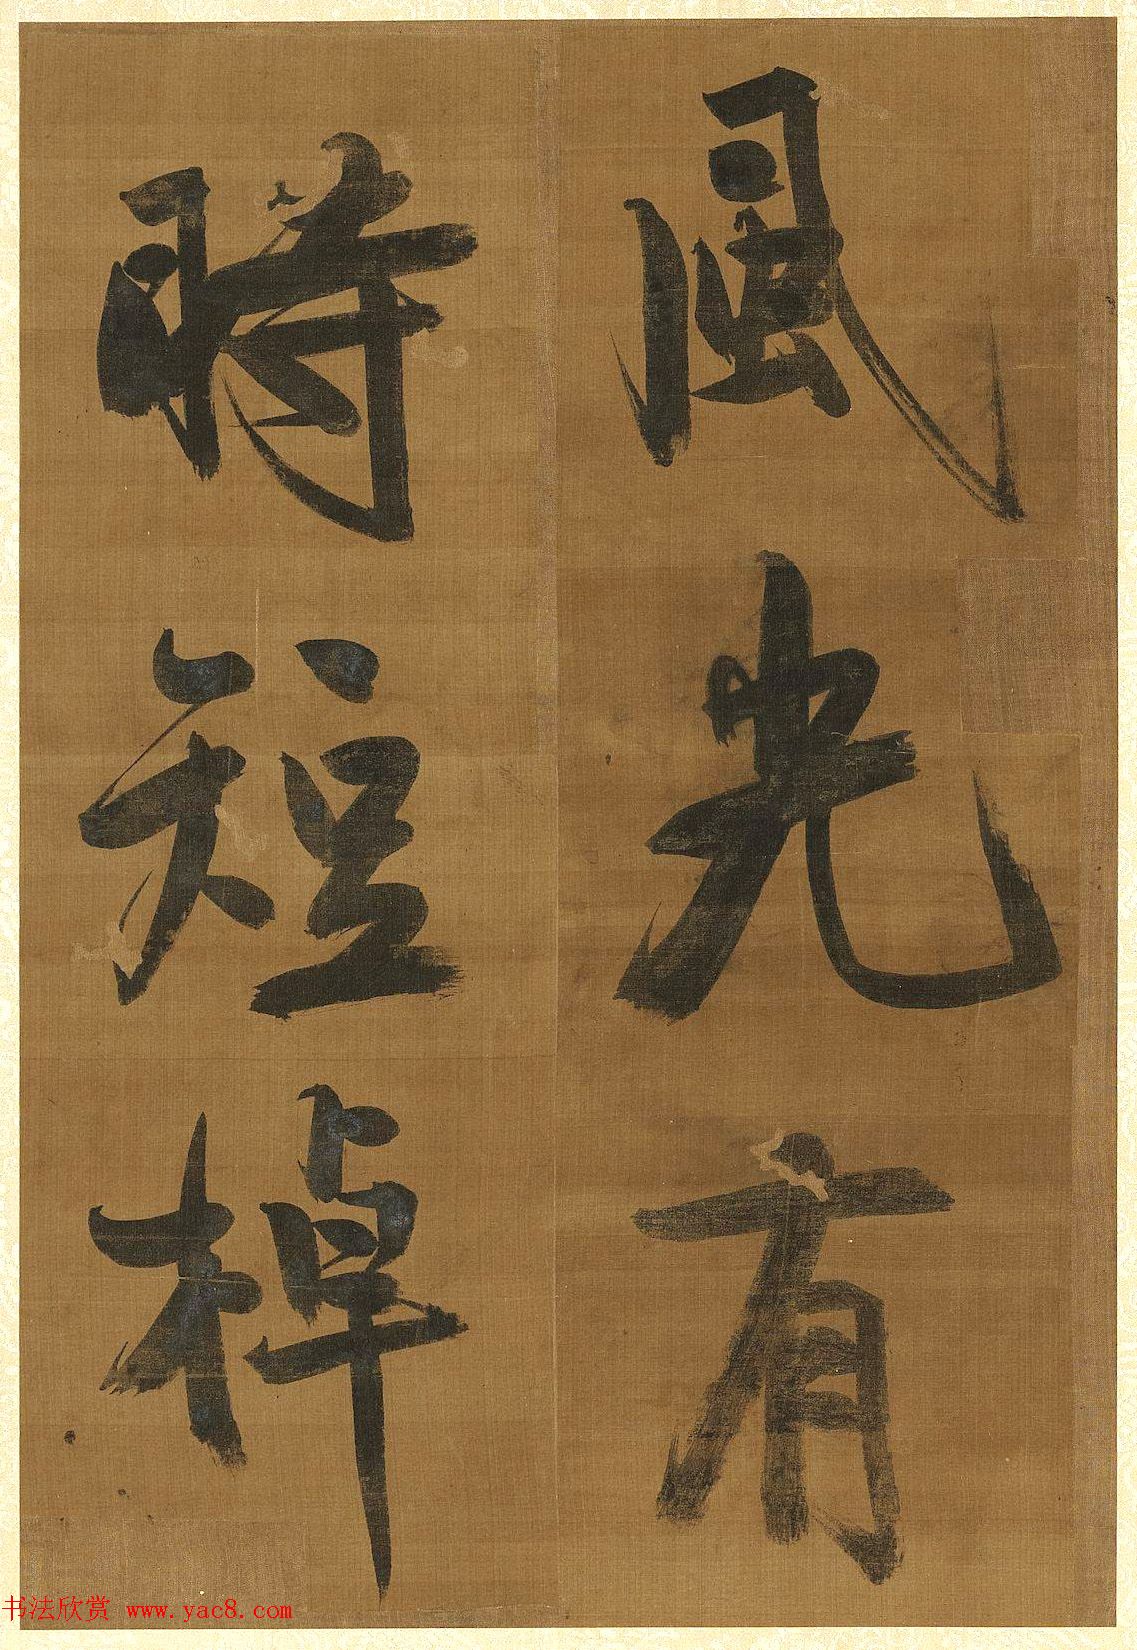 風光有
時短棹
书法欣赏 www.yac8.com